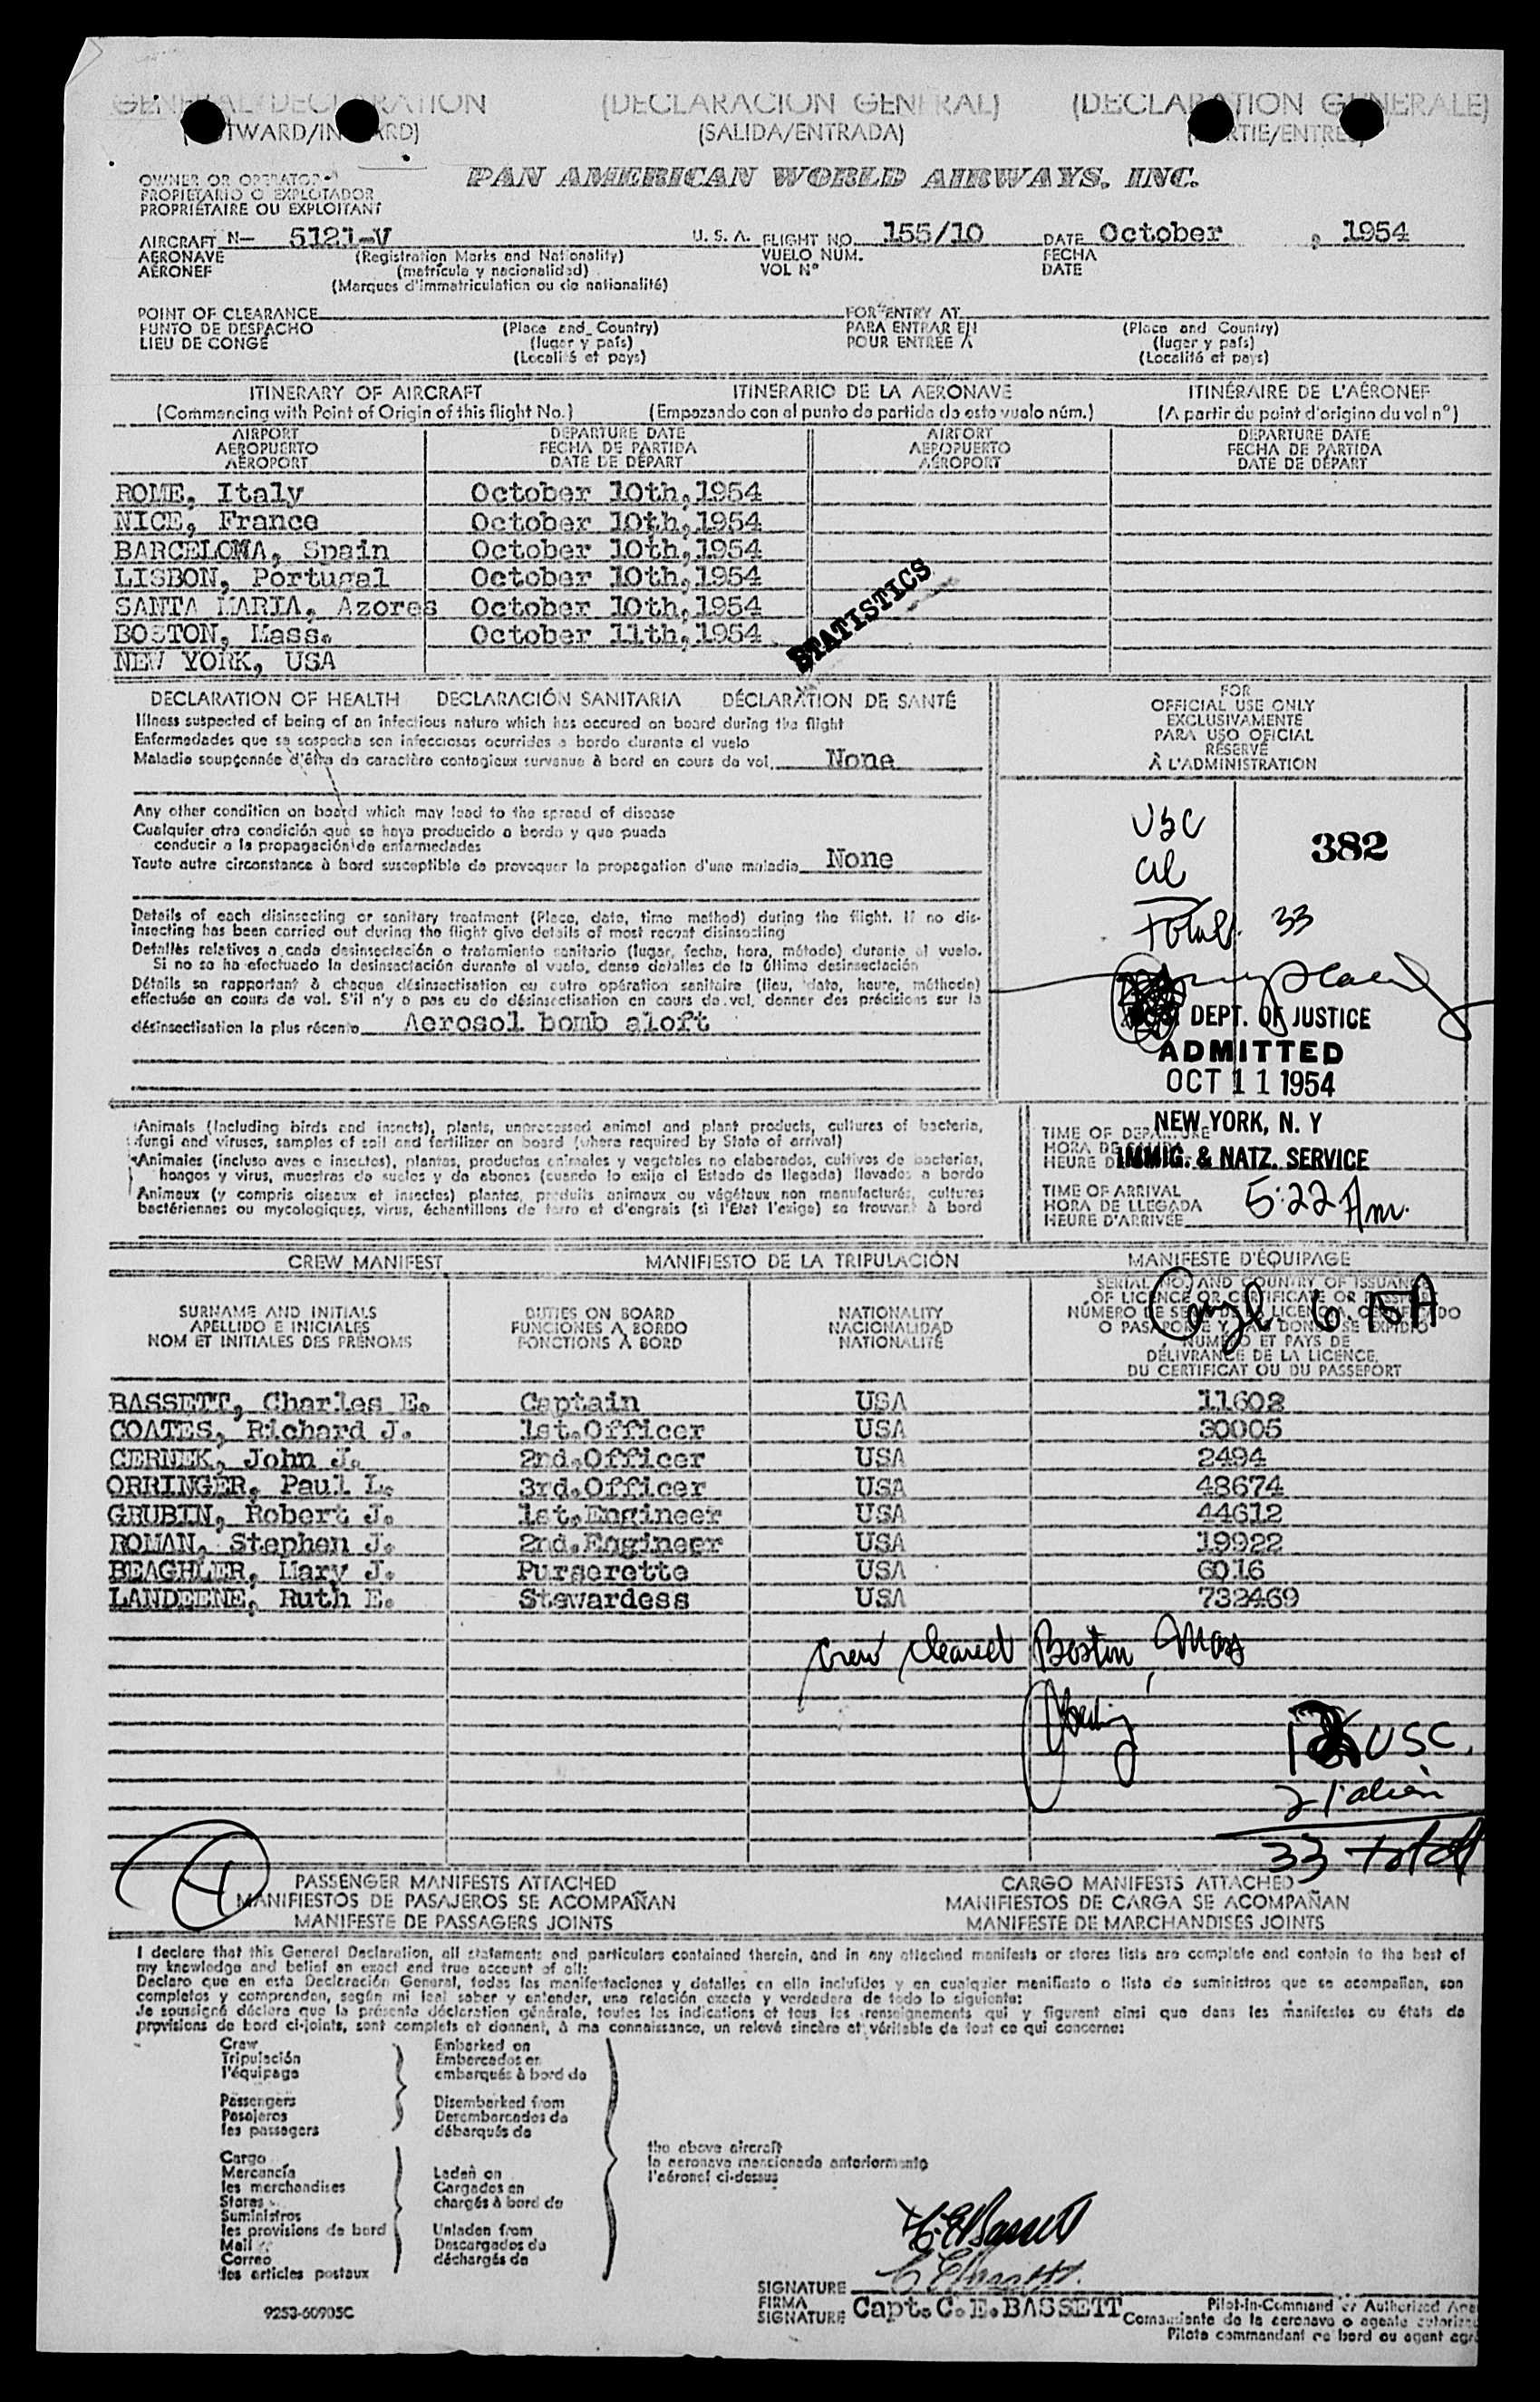 GENERAL DECLARATION (DECLARACION GENERAL) (DECLARATION GENERALE)
(OUTWARD/INWARD) (SALIDA/ENTRADA) (SORTIE/ENTREE)
OWNER OR OPERATOR
PROPIETARIO O EXPLOTADOR
PROPRIÉTAIRE OU EXPLOITANT
PAN AMERICAN WORLD AIRWAYS, INC.
AIRCRAFT N- 5121-V U. S. A. FLIGHT NO. 155/10 DATE October , 1954
AERONAVE (Registration Marks and Nationality) VUELO NUM. FECHA
AÉRONEF (matrícula y nacionalidad) VOL N° DATE
(Marques d'immatriculation ou de nationalité)
POINT OF CLEARANCE FOR ENTRY AT
PUNTO DE DESPACHO (Place and Country) PARA ENTRAR EN (Place and Country)
LIEU DE CONGÉ (lugar y país) POUR ENTRÉE À (lugar y país)
(Localité et pays) (Localité et pays)
ITINERARY OF AIRCRAFT ITINERARIO DE LA AERONAVE ITINÉRAIRE DE L'AÉRONEF
(Commencing with Point of Origin of this flight No.) (Empezando con el punto de partida de este vuelo núm.) (A partir du point d'origine du vol n°)
AIRPORT DEPARTURE DATE AIRPORT DEPARTURE DATE
AEROPUERTO FECHA DE PARTIDA AEROPUERTO FECHA DE PARTIDA
AÉROPORT DATE DE DÉPART AÉROPORT DATE DE DÉPART
ROME, Italy October 10th,1954
NICE, France October 10th,1954
BARCELONA, Spain October 10th,1954
LISBON, Portugal October 10th,1954
SANTA MARIA, Azores October 10th,1954
BOSTON, Mass. October 11th,1954
NEW YORK, USA
STATISTICS
DECLARATION OF HEALTH DECLARACIÓN SANITARIA DÉCLARATION DE SANTÉ
Illness suspected of being of an infectious nature which has occured on board during the flight
Enfermedades que se sospecha son infecciosas ocurridas a bordo durante el vuelo
Maladie soupçonnée d'être de caractère contagieux survenue à bord en cours de vol. None
Any other condition on board which may lead to the spread of disease
Cualquier otra condición que se haya producido a bordo y que pueda
conducir a la propagación de enfermedades
Toute autre circonstance à bord susceptible de provoquer la propagation d'une maladie None
Details of each disinsecting or sanitary treatment (Place, date, time method) during the flight. If no dis-
insecting has been carried out during the flight give details of most recent disinsecting
Detalles relativos a cada desinsectación o tratamiento sanitario (lugar, fecha, hora, método) durante el vuelo.
Si no se ha efectuado la desinsectación durante el vuelo, dense detalles de la última desinsectación
Détails se rapportant à chaque désinsectisation ou autre opération sanitaire (lieu, date, heure, méthode)
effectuée en cours de vol. S'il n'y a pas eu de désinsectisation en cours de vol, donner des précisions sur la
désinsectisation la plus récente Aerosol bomb aloft
FOR
OFFICIAL USE ONLY
EXCLUSIVAMENTE
PARA USO OFICIAL
RÉSERVÉ
À L'ADMINISTRATION
USC
al
382
Total. 33
DEPT. OF JUSTICE
ADMITTED
OCT 11 1954
NEW YORK, N. Y
IMMIG. & NATZ. SERVICE
Animals (Including birds and insects), plants, unprocessed animal and plant products, cultures of bacteria,
fungi and viruses, samples of soil and fertilizer on board (where required by State of arrival)
Animales (incluso aves e insectos), plantas, productos animales y vegetales no elaborados, cultivos de bacterias,
hongos y virus, muestras de suelos y de abonos (cuando lo exija el Estado de llegada) llevados a bordo
Animaux (y compris oiseaux et insectes) plantes, produits animaux ou végétaux non manufacturés, cultures
bactériennes ou mycologiques, virus, échantillons de terre et d'engrais (si l'État l'exige) se trouvant à bord
TIME OF DEPARTURE
HORA DE SALIDA
HEURE DE
TIME OF ARRIVAL
HORA DE LLEGADA 5:22 Am.
HEURE D'ARRIVÉE
CREW MANIFEST MANIFIESTO DE LA TRIPULACIÓN MANIFESTE D'ÉQUIPAGE
SURNAME AND INITIALS
APELLIDO E INICIALES
NOM ET INITIALES DES PRÉNOMS
DUTIES ON BOARD
FUNCIONES A BORDO
FONCTIONS À BORD
NATIONALITY
NACIONALIDAD
NATIONALITÉ
SERIAL NO. AND COUNTRY OF ISSUANCE
OF LICENCE OR CERTIFICATE OR PASSPORT
NÚMERO DE SERIE DE LICENCIA, CERTIFICADO
O PASAPORTE Y PAÍS DONDE SE EXPIDIÓ
NUMÉRO ET PAYS DE
DÉLIVRANCE DE LA LICENCE,
DU CERTIFICAT OU DU PASSEPORT
BASSETT, Charles E. Captain USA 11602
COATES, Richard J. 1st.Officer USA 30005
CERNEK, John J. 2nd.Officer USA 2494
ORRINGER, Paul L. 3rd.Officer USA 48674
GRUBIN, Robert J. 1st.Engineer USA 44612
ROMAN, Stephen J. 2nd.Engineer USA 19922
BEAGHLER, Mary J. Purserette USA 6016
LANDEENE, Ruth E. Stewardess USA 732469
Crew cleared Boston, Mass
USC.
21 alien
33 total
PASSENGER MANIFESTS ATTACHED CARGO MANIFESTS ATTACHED
MANIFIESTOS DE PASAJEROS SE ACOMPAÑAN MANIFIESTOS DE CARGA SE ACOMPAÑAN
MANIFESTE DE PASSAGERS JOINTS MANIFESTE DE MARCHANDISES JOINTS
I declare that this General Declaration, all statements and particulars contained therein, and in any attached manifests or stores lists are complete and contain to the best of
my knowledge and belief an exact and true account of all:
Declaro que en esta Declaración General, todas las manifestaciones y detalles en ella incluídos y en cualquier manifiesto o lista de suministros que se acompañan, son
completos y comprenden, según mi leal saber y entender, una relación exacta y verdadera de todo lo siguiente:
Je soussigné déclare que la présente déclaration générale, toutes les indications et tous les renseignements qui y figurent ainsi que dans les manifestes ou états de
provisions de bord ci-joints, sont complets et donnent, à ma connaissance, un relevé sincère et véritable de tout ce qui concerne:
Crew
Tripulación
l'équipage
Passengers
Pasajeros
les passagers
Embarked on
Embarcados en
embarqués à bord de
Disembarked from
Desembarcados de
débarqués de
Cargo
Mercancía
les marchandises
Stores
Suministros
les provisions de bord
Mail
Correo
les articles postaux
Laden on
Cargados en
chargés à bord de
Unladen from
Descargados de
déchargés de
the above aircraft
la aeronave mencionada anteriormente
l'aéronef ci-dessus
C.E. Bassett
SIGNATURE
FIRMA
SIGNATURE Capt. C. E. BASSETT
Pilot-in-Command or Authorized Age
Comandante de la aeronave o agente autoriza
Pilote commandant de bord ou agent agré
9253-60905C